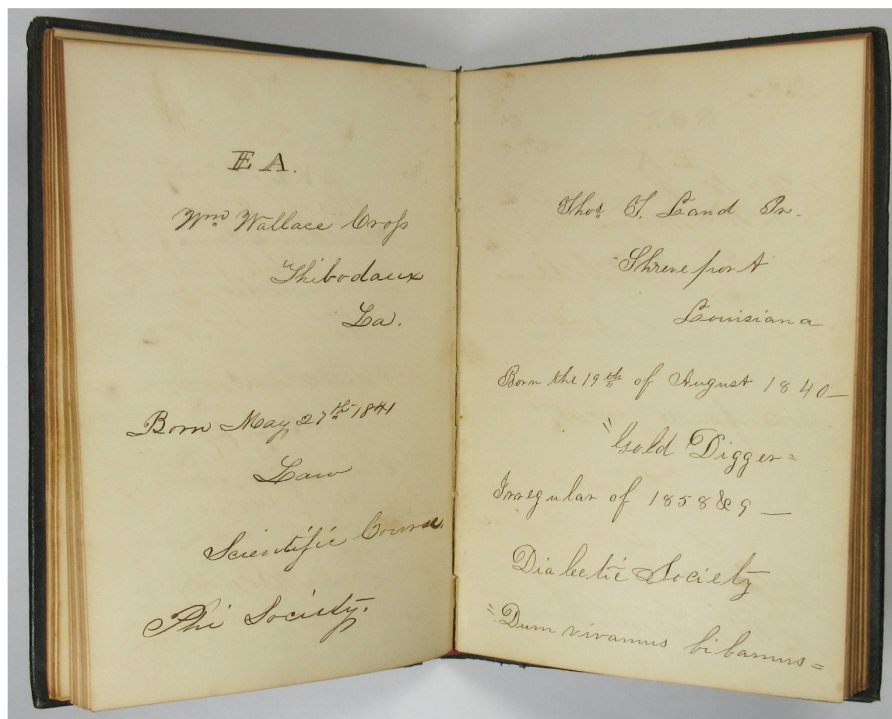 EA.
Wm. Wallace Cross
Thibodaux
La.
Born May 27th 1841
Law
Scientific Course.
Phi Society.
Thos. T. Land Jr.
Shreveport
Louisiana
Born the 19th of August 1840—
"Gold Digger"
Irregular of 1858 & 9 —
Dialectic Society
"Dum vivamus bibamus"